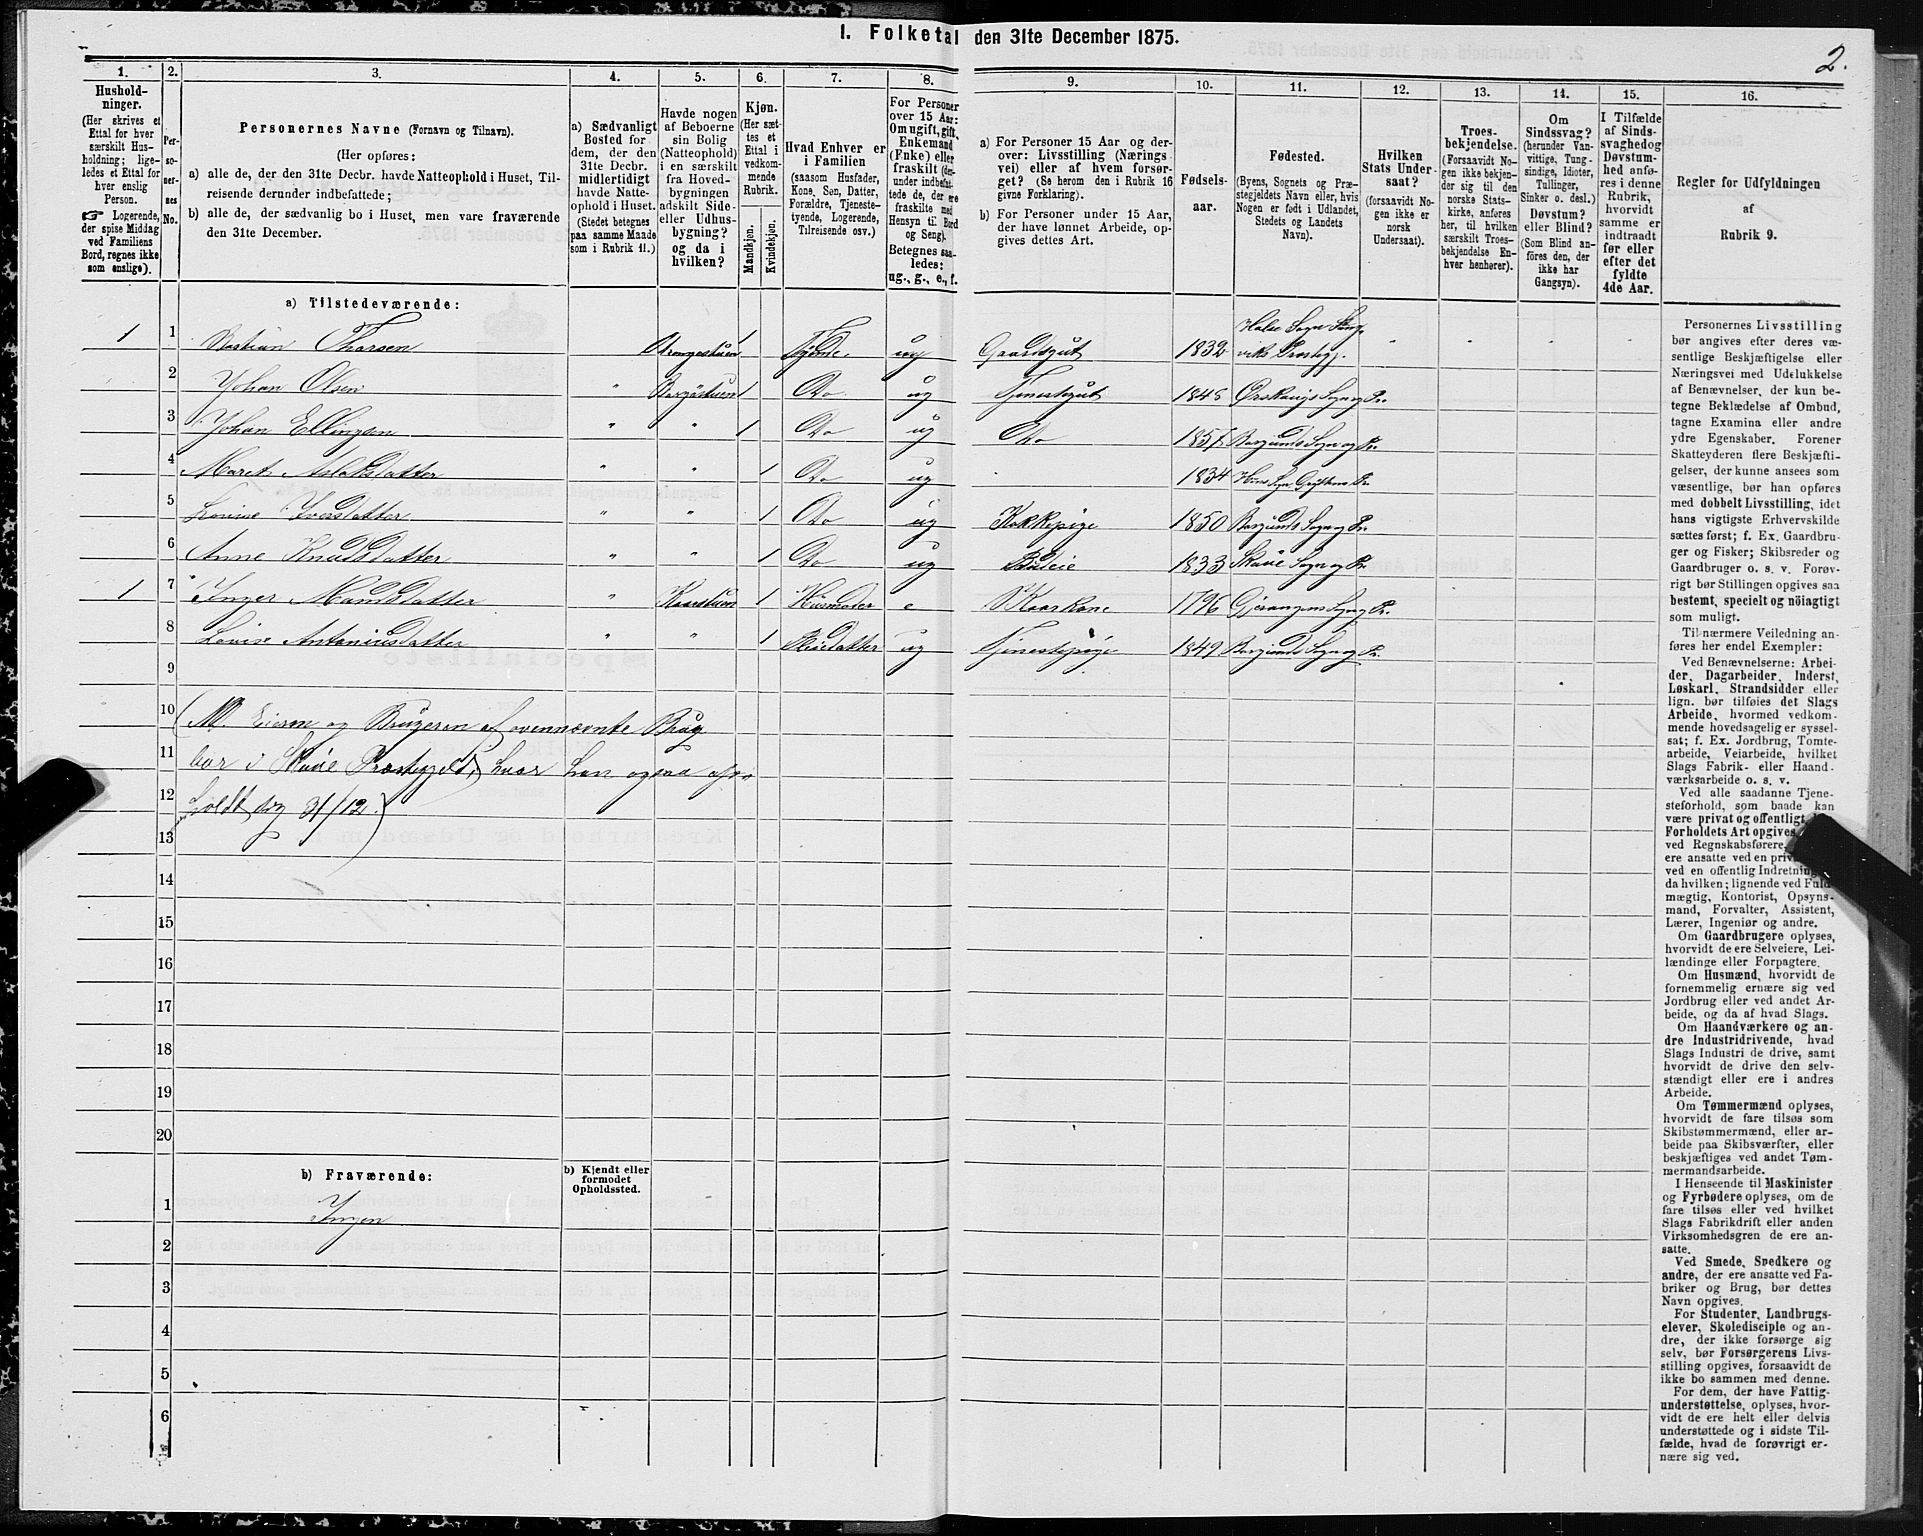 I. Folketal den 31te December 1875.
2.
1.
Hushold-
ninger.
(Her skrives et
Ettal for hver
særskilt Hus-
holdning; lige-
ledes et Ettal for
hver enslig
Person.
Logerende,
der spise Middag
ved Familiens
Bord, regnes ikke
som enslige).
2.
Per-
so-
ner-
nes
No.
3.
Personernes Navne (Fornavn og Tilnavn).
(Her opføres:
a) alle de, der den 31te Decbr. havde Natteophold i Huset, Til-
reisende derunder indbefattede;
b) alle de, der sædvanlig bo i Huset, men vare fraværende
den 31te December.
4.
a) Sædvanligt
Bosted for
dem, der den
31te Decbr.
midlertidigt
havde Natte-
ophold i Huset.
(Stedet betegnes
paa samme Maade
som i Rubrik 11.)
5.
Havde nogen
af Beboerne
sin Bolig
(Natteophold)
i en særskilt
fra Hoved-
bygningen
adskilt Side-
eller Udhus-
bygning?
og da i
hvilken?
6.
Kjøn.
(Her sæt-
tes et
Ettal i
vedkom-
mende
Rubrik.
Mandkjøn.
Kvindekjøn.
7.
Hvad Enhver er
i Familien
(saasom Husfader,
Kone, Søn, Datter,
Forældre, Tjeneste-
tyende, Logerende,
Tilreisende osv.)
8.
For Personer
over 15 Aar:
Om ugift, gift,
Enkemand
(Enke) eller
fraskilt (her-
under indbefat-
tede de, der ere
fraskilte med
Hensyn til Bord
og Seng).
Betegnes saa-
ledes:
ug., g., e., f.
9.
a) For Personer 15 Aar og der-
over: Livsstilling (Nærings-
vei) eller af hvem forsør-
get? (Se herom den i Rubrik 16
givne Forklaring).
b) For Personer under 15 Aar,
der have lønnet Arbeide, op-
gives dettes Art.
10.
Fødsels-
aar.
11.
Fødested.
(Byens, Sognets og Præ-
stegjeldets Navn eller, hvis
Nogen er født i Udlandet,
Stedets og Landets
Navn).
12.
Hvilken
Stats Under-
saat?
(forsaavidt No-
gen ikke er
norsk
Undersaat).
13.
Troes-
bekjendelse.
(Forsaavidt No-
gen ikke bekjen-
der sig til den
norske Stats-
kirke, anføres
her, til hvilken
særskilt Troes-
bekjendelse En-
hver henhører).
14.
Om
Sindssvag?
(herunder Van-
vittige, Tung-
sindige, Idioter,
Tullinger,
Sinker o. desl.)
Døvstum?
eller Blind?
(Som Blind an-
føres den, der
ikke har
Gangsyn).
15.
I Tilfælde
af Sinds-
svaghed og
Døvstum-
hed anfø-
res i denne
Rubrik,
hvorvidt
samme er
indtraadt
før eller
efter det
fyldte
4de Aar.
16.
Regler for Udfyldningen
af
Rubrik 9.
a) Tilstedeværende:
1 1 Bastian Thorsen 1 ug Gaardsgut 1832
2 Johan Olsen " 1 Do ug Tjenestgut 1848 Ørskougs Sogn og Pr.
3 Johan Ellingsen " " 1 Do ug Do 1857 Borgunds Sogn og Pr.
4 Maret Aslaksdatter " " 1 Do ug 1834
5 Lovise Iversdatter " " 1 Do ug Kokkepige 1850 Borgunds Sogn og Pr.
6 Anne Knudsdatter " " 1 Do ug Budeie 1833 Skaue Sogn og Pr.
1 7 Inger Mandsdatter " 1 Husmoder e Kaarkone 1796
8 Lovise Antoniusdatter " " 1 Pleiedatter ug Tjenestepige 1849 Borgunds Sogn og Pr.
9
10 (NB. Eieren og Brugeren af ovennævnte Brug
11 bor i Skaue Præstegjeld, hvor han ogsaa
12 holdt sig 31/12.)
13
14
15
16
17
18
19
20
b) Fraværende:
b) Kjendt eller
formodet
Opholdssted.
1 Ingen
2
3
4
5
6
Personernes Livsstilling
bør angives efter deres væ-
sentlige Beskjæftigelse eller
Næringsvei med Udelukkelse
af Benævnelser, der kun be-
tegne Beklædelse af Ombud,
tagne Examina eller andre
ydre Egenskaber. Forener
Skatteyderen flere Beskjæfti-
gelser, der kunne ansees som
væsentlige, bør han opføres
med dobbelt Livsstilling, idet
hans vigtigste Erhvervskilde
sættes først; f. Ex. Gaardbru-
ger og Fisker; Skibsreder og
Gaardbruger o. s. v. Forøv-
rigt bør Stillingen opgives saa
bestemt, specielt og nöiagtigt
som muligt.
Til nærmere Veiledning an-
føres her endel Exempler:
Ved Benævnelserne: Arbei-
der, Dagarbeider, Inderst,
Løskarl, Strandsidder eller
lign. bør tilføies det Slags
Arbeide, hvormed vedkom-
mende hovedsagelig er syssel-
sat; f. Ex. Jordbrug, Tomte-
arbeide, Veiarbeide, hvilket
Slags Fabrik- eller Haand-
værksarbeide o. s. v.
Ved alle saadanne Tjene-
steforhold, som baade kan
være privat og offentligt,
Forholdets Art opgives,
ved Regnskabsførere,
ere ansatte ved en
ved en offentlig Indretning
da hvilken; lignende ved Fuld-
mægtig, Kontorist, Opsyns-
mand, Forvalter, Assistent,
Lærer, Ingeniør og andre.
Om Gaardbrugere oplyses,
hvorvidt de ere Selveiere, Lei-
lændinge eller Forpagtere.
Om Husmænd, hvorvidt de
fornemmelig ernære sig ved
Jordbrug eller ved andet Ar-
beide, og da af hvad Slags.
Om Haandværkere og an-
dre Industridrivende, hvad
Slags Industri de drive, samt
hvorvidt de drive den selv-
stændigt eller ere i andres
Arbeide.
Om Tømmermænd oplyses,
hvorvidt de fare tilsøs som
Skibstømmermænd, eller ar-
beide paa Skibsværfter, eller
beskjæftiges ved andet Tøm-
mermandsarbeide.
I Henseende til Maskinister
og Fyrbødere oplyses, om de
fare tilsøs eller ved hvilket
Slags Fabrikdrift eller anden
Virksomhedsgren de ere an-
satte.
Ved Smede, Snedkere og
andre, der ere ansatte ved Fa-
briker og Brug, bør dettes
Navn opgives.
For Studenter, Landbrugs-
elever, Skoledisciple og an-
dre, der ikke forsørge sig
selv, bør Forsørgerens Livs-
stilling opgives, forsaavidt de
ikke bo sammen med denne.
For dem, der have Fattig-
understøttelse, oplyses, hvor-
vidt de ere helt eller delvis
understøttede og i sidste Til-
fælde, hvad de forøvrigt er-
nære sig ved.